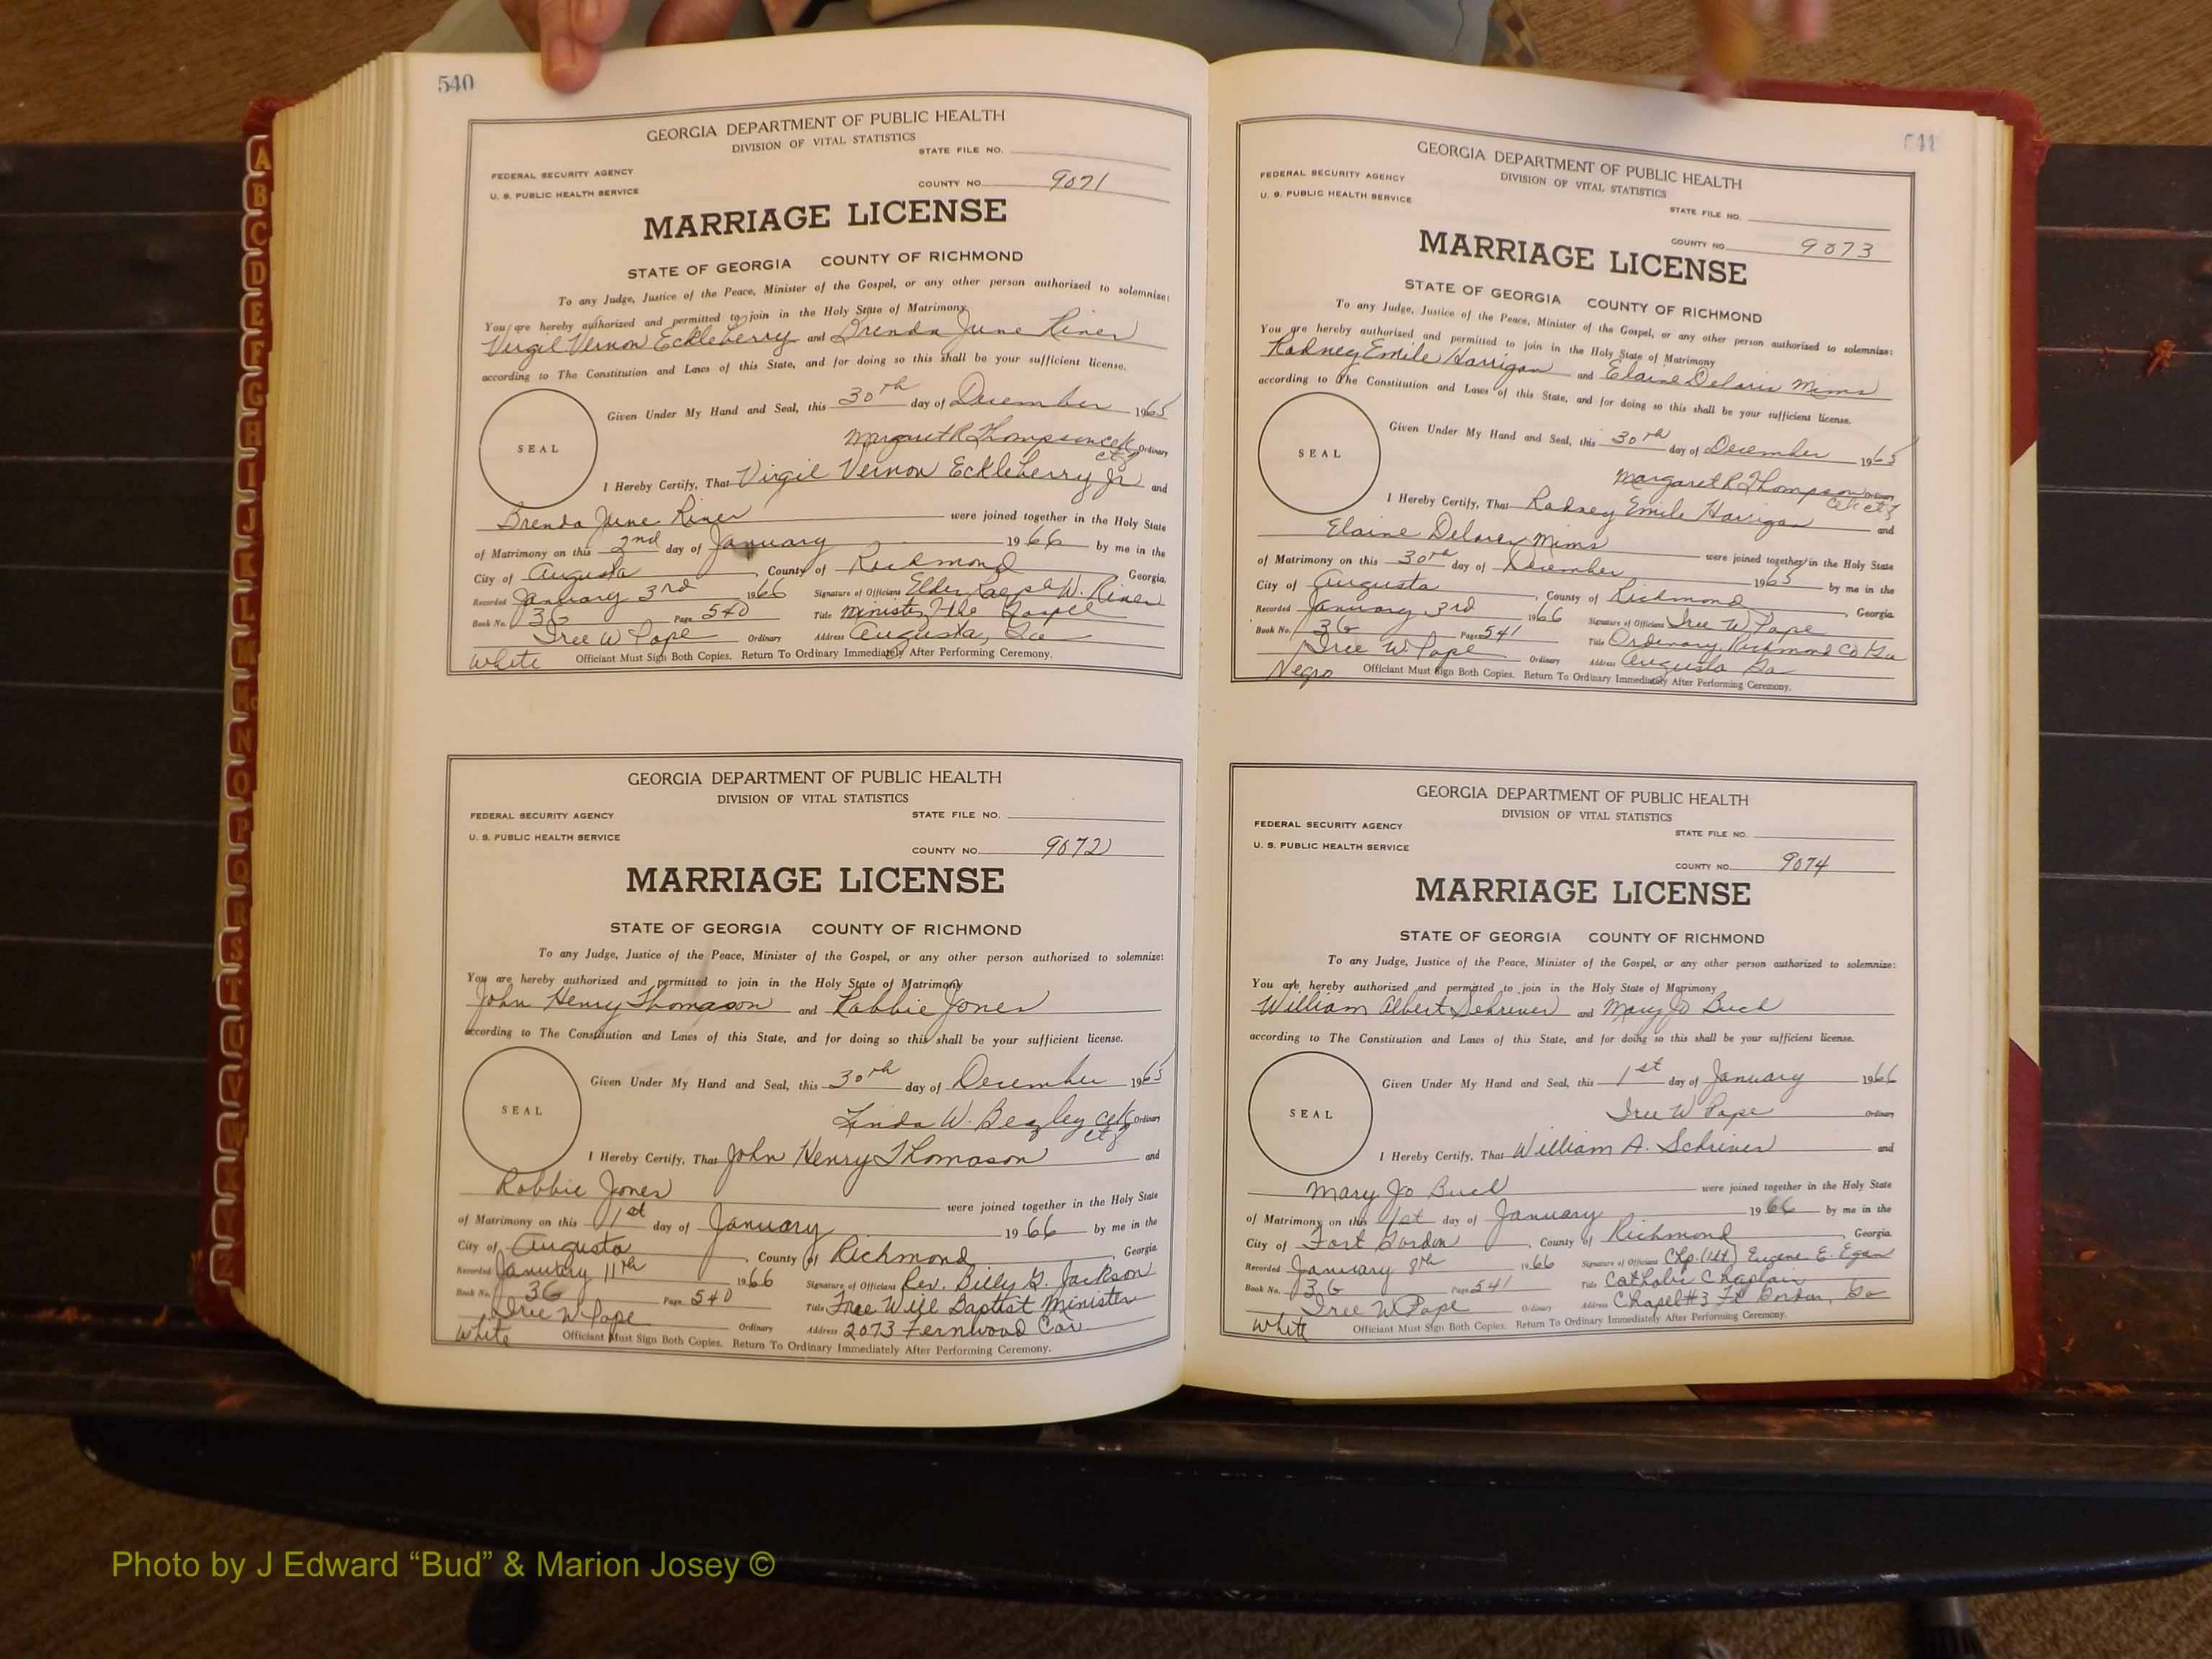 540
GEORGIA DEPARTMENT OF PUBLIC HEALTH
DIVISION OF VITAL STATISTICS
STATE FILE NO.
FEDERAL SECURITY AGENCY
U. S. PUBLIC HEALTH SERVICE
COUNTY NO. 9071
MARRIAGE LICENSE
STATE OF GEORGIA COUNTY OF RICHMOND
To any Judge, Justice of the Peace, Minister of the Gospel, or any other person authorized to solemnize:
You are hereby authorized and permitted to join in the Holy State of Matrimony
Virgil Vernon Eckleberry and Brenda June Riner
according to The Constitution and Laws of this State, and for doing so this shall be your sufficient license.
Given Under My Hand and Seal, this 30th day of December 1965
SEAL
Margaret R Thompson clk Ordinary
I Hereby Certify, That Virgil Vernon Eckleberry Jr and
Brenda June Riner were joined together in the Holy State
of Matrimony on this 2nd day of January 1966 by me in the
City of Augusta, County of Richmond Georgia.
Recorded January 3rd 1966 Signature of Officiant Elder W. Riner
Book No. 36 Page 540 Title Minister of the Gospel
Iree W Pope Ordinary Address Augusta, Ga
White Officiant Must Sign Both Copies. Return To Ordinary Immediately After Performing Ceremony.
GEORGIA DEPARTMENT OF PUBLIC HEALTH
DIVISION OF VITAL STATISTICS
FEDERAL SECURITY AGENCY STATE FILE NO.
U. S. PUBLIC HEALTH SERVICE
COUNTY NO. 9072
MARRIAGE LICENSE
STATE OF GEORGIA COUNTY OF RICHMOND
To any Judge, Justice of the Peace, Minister of the Gospel, or any other person authorized to solemnize:
You are hereby authorized and permitted to join in the Holy State of Matrimony
John Henry Thomason and Robbie Jones
according to The Constitution and Laws of this State, and for doing so this shall be your sufficient license.
Given Under My Hand and Seal, this 30th day of December 1965
SEAL
Linda W. Beazley clk Ordinary
I Hereby Certify, That John Henry Thomason and
Robbie Jones were joined together in the Holy State
of Matrimony on this 1st day of January 1966 by me in the
City of Augusta, County of Richmond, Georgia
Recorded January 11th 1966 Signature of Officiant Rev. Billy G. Jackson
Book No. 36 Page 540 Title Free Will Baptist Minister
Iree W Pope Ordinary Address 2073 Fernwood
White Officiant Must Sign Both Copies. Return To Ordinary Immediately After Performing Ceremony.
541
GEORGIA DEPARTMENT OF PUBLIC HEALTH
DIVISION OF VITAL STATISTICS
FEDERAL SECURITY AGENCY
U. S. PUBLIC HEALTH SERVICE
STATE FILE NO.
COUNTY NO. 9073
MARRIAGE LICENSE
STATE OF GEORGIA COUNTY OF RICHMOND
To any Judge, Justice of the Peace, Minister of the Gospel, or any other person authorized to solemnize:
You are hereby authorized and permitted to join in the Holy State of Matrimony
Rodney Emile Harrigan and Elaine Deloris Mims
according to The Constitution and Laws of this State, and for doing so this shall be your sufficient license.
Given Under My Hand and Seal, this 30th day of December 1965
SEAL
Margaret R Thompson Ordinary
I Hereby Certify, That Rodney Emile Harrigan and
Elaine Mims were joined together in the Holy State
of Matrimony on this 30th day of December 1965 by me in the
City of Augusta, County of Richmond, Georgia
Recorded January 3rd 1966 Signature of Officiant Iree W Pope
Book No. 36 Page 541 Title Ordinary, Richmond Co Ga
Iree W. Pope Ordinary Address Augusta Ga
Negro Officiant Must Sign Both Copies. Return To Ordinary Immediately After Performing Ceremony.
GEORGIA DEPARTMENT OF PUBLIC HEALTH
DIVISION OF VITAL STATISTICS
FEDERAL SECURITY AGENCY
STATE FILE NO.
U. S. PUBLIC HEALTH SERVICE
COUNTY NO. 9074
MARRIAGE LICENSE
STATE OF GEORGIA COUNTY OF RICHMOND
To any Judge, Justice of the Peace, Minister of the Gospel, or any other person authorized to solemnize:
You are hereby authorized and permitted to join in the Holy State of Matrimony
William Albert Schriver and Mary Jo Buck
according to The Constitution and Laws of this State, and for doing so this shall be your sufficient license.
Given Under My Hand and Seal, this 1st day of January 1966
SEAL
Iree W Pope Ordinary
I Hereby Certify, That William A. Schriver and
Mary Jo Buck were joined together in the Holy State
of Matrimony on this 1st day of January 1966 by me in the
City of Fort Gordon, County of Richmond, Georgia
Recorded January 8th 1966 Signature of Officiant Chp. (1Lt) Eugene E. Egan
Book No. 36 Page 541 Title Catholic Chaplain
Iree W Pope Ordinary Address Chapel #3 Ft. Gordon, Ga
White Officiant Must Sign Both Copies. Return To Ordinary Immediately After Performing Ceremony.
Photo by J Edward “Bud” & Marion Josey ©